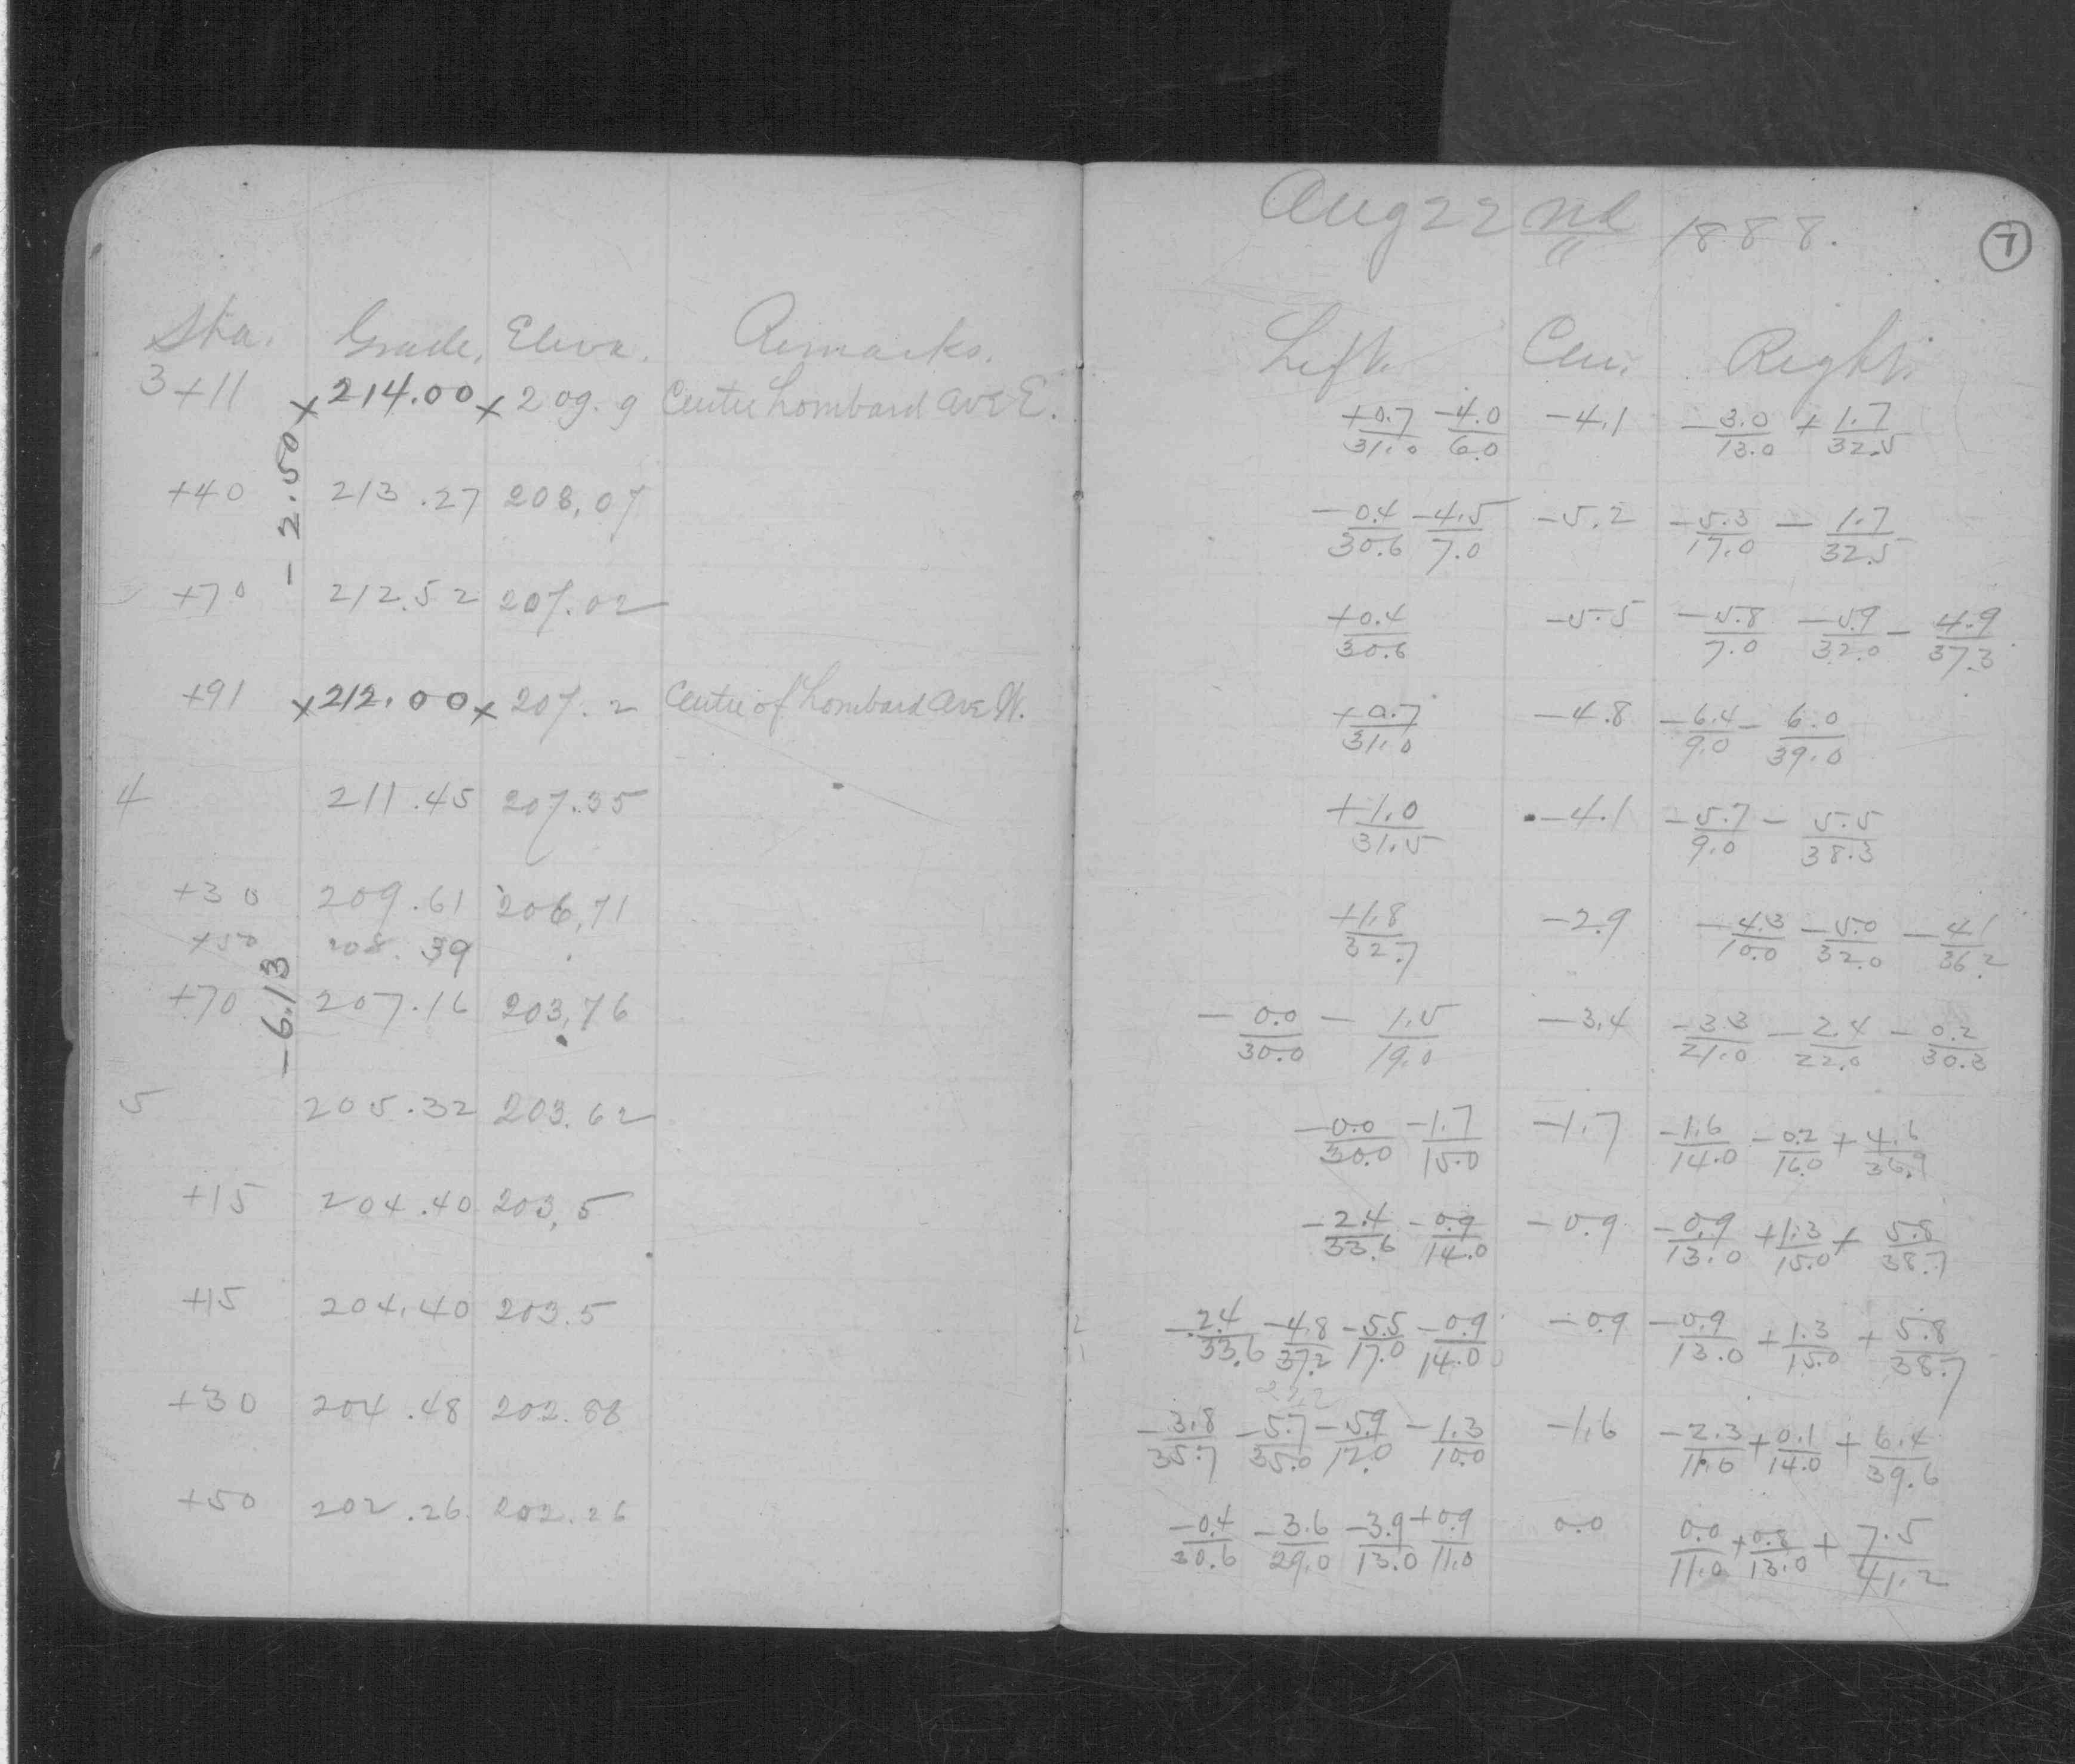 Aug 22nd 1888. 7
Sta. Grade. Eleva. Remarks. Left. Cen. Right.
3+11 x 214.00 x 209.9 Centre Lombard Ave E. +0.7/31.0 -4.0/6.0 -4.1 -3.0/13.0 +1.7/32.5
-2.50
+40 213.27 208.07 -0.4/30.6 -4.5/7.0 -5.2 -5.3/17.0 -1.7/32.5
+70 212.52 207.02 +0.4/30.6 -5.5 -5.8/7.0 -5.9/32.0 -4.9/37.3
+91 x 212.00 x 207.2 Centre of Lombard Ave W. +0.7/31.0 -4.8 -6.4/9.0 -6.0/39.0
4 211.45 207.35 +1.0/31.5 -4.1 -5.7/9.0 -5.5/38.3
+30 209.61 206.71 +1.8/32.7 -2.9 -4.3/10.0 -5.0/32.0 -4.1/36.2
+50 208.39
-6.13
+70 207.16 203.76 -0.0/30.0 -1.5/19.0 -3.4 -3.3/21.0 -2.4/22.0 -0.2/30.3
5 205.32 203.62 -0.0/30.0 -1.7/15.0 -1.7 -1.6/14.0 -0.2/16.0 +4.6/36.9
+15 204.40 203.5 -2.4/33.6 -0.9/14.0 -0.9 -0.9/13.0 +1.3/15.0 +5.8/38.7
+15 204.40 203.5 -2.4/33.6 -4.8/37.2 -5.5/17.0 -0.9/14.0 -0.9 -0.9/13.0 +1.3/15.0 +5.8/38.7
+30 204.48 202.88 -3.8/35.7 -5.7/35.0 -5.9/12.0 -1.3/10.0 -1.6 -2.3/11.0 +0.1/14.0 +6.4/39.6
+50 202.26 202.26 -0.4/30.6 -3.6/29.0 -3.9/13.0 +0.9/11.0 0.0 0.0/11.0 +0.8/13.0 +7.5/41.2